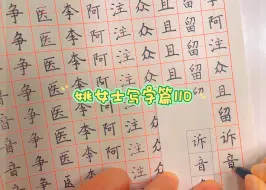 争医李阿注众且留
争医李阿注众且留
争医李阿注众且留
争医李阿注众
姚女士写字篇110
争医李阿注众
争医李阿注众
争医李阿注
争医李阿注
留
诉诉
音音